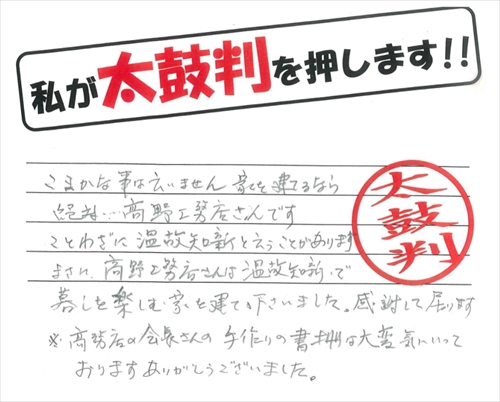 私が太鼓判を押します!!
こまかな事は云いません 家を建てるなら
絶対…高野工務店さんです
ことわざに温故知新と云うことがあります
まさに、高野工務店さんは温故知新、で
暮しを楽しむ家を建て下さいました。感謝して居ります
※高務店の会長さんの手作りの書棚は大変気にいって
おりますありがとうございました。
太鼓判